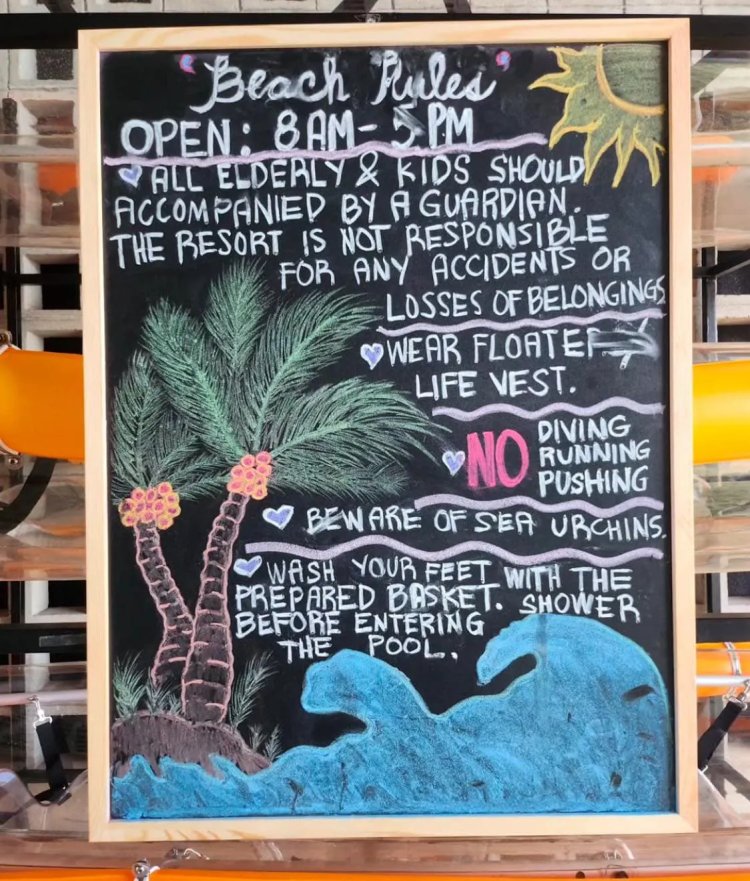 "Beach Rules"
OPEN: 8 AM - 5 PM
ALL ELDERLY & KIDS SHOULD
ACCOMPANIED BY A GUARDIAN.
THE RESORT IS NOT RESPONSIBLE
FOR ANY ACCIDENTS OR
LOSSES OF BELONGINGS
WEAR FLOATER /
LIFE VEST.
NO DIVING
RUNNING
PUSHING
BEWARE OF SEA URCHINS.
WASH YOUR FEET WITH THE
PREPARED BASKET. SHOWER
BEFORE ENTERING
THE POOL.